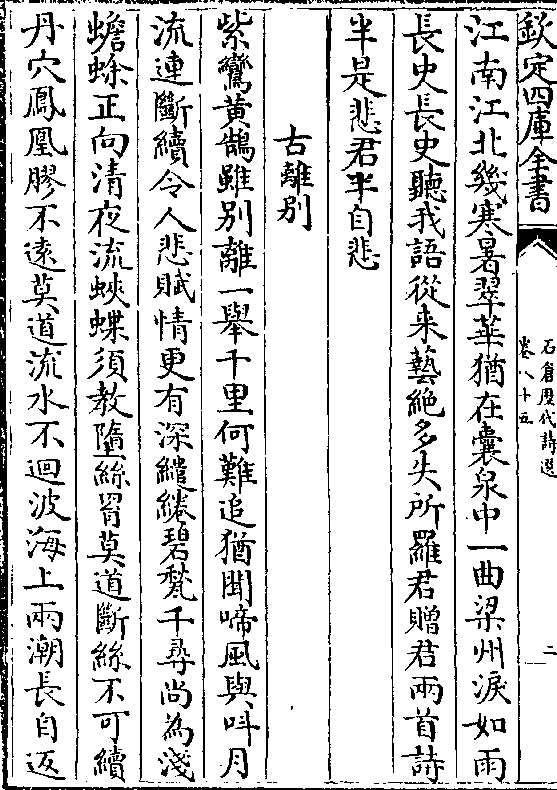 欽定四庫全書
石倉歷代詩選
卷八十五
二
江南江北幾寒暑翠華猶在囊泉中一曲梁州淚如雨
長史長史聽我語從来藝絶多失所羅君贈君兩首詩
半是悲君半自悲
古離别
紫鸞黃鵠雖别離一舉千里何難追猶聞啼風與叫月
流連斷續令人悲賦情更有深繾綣碧甃千尋尚為淺
蟾蜍正向清夜流蛺蝶須教墮絲罥莫道斷絲不可續
丹穴鳳凰膠不遠莫道流水不迴波海上兩潮長自返